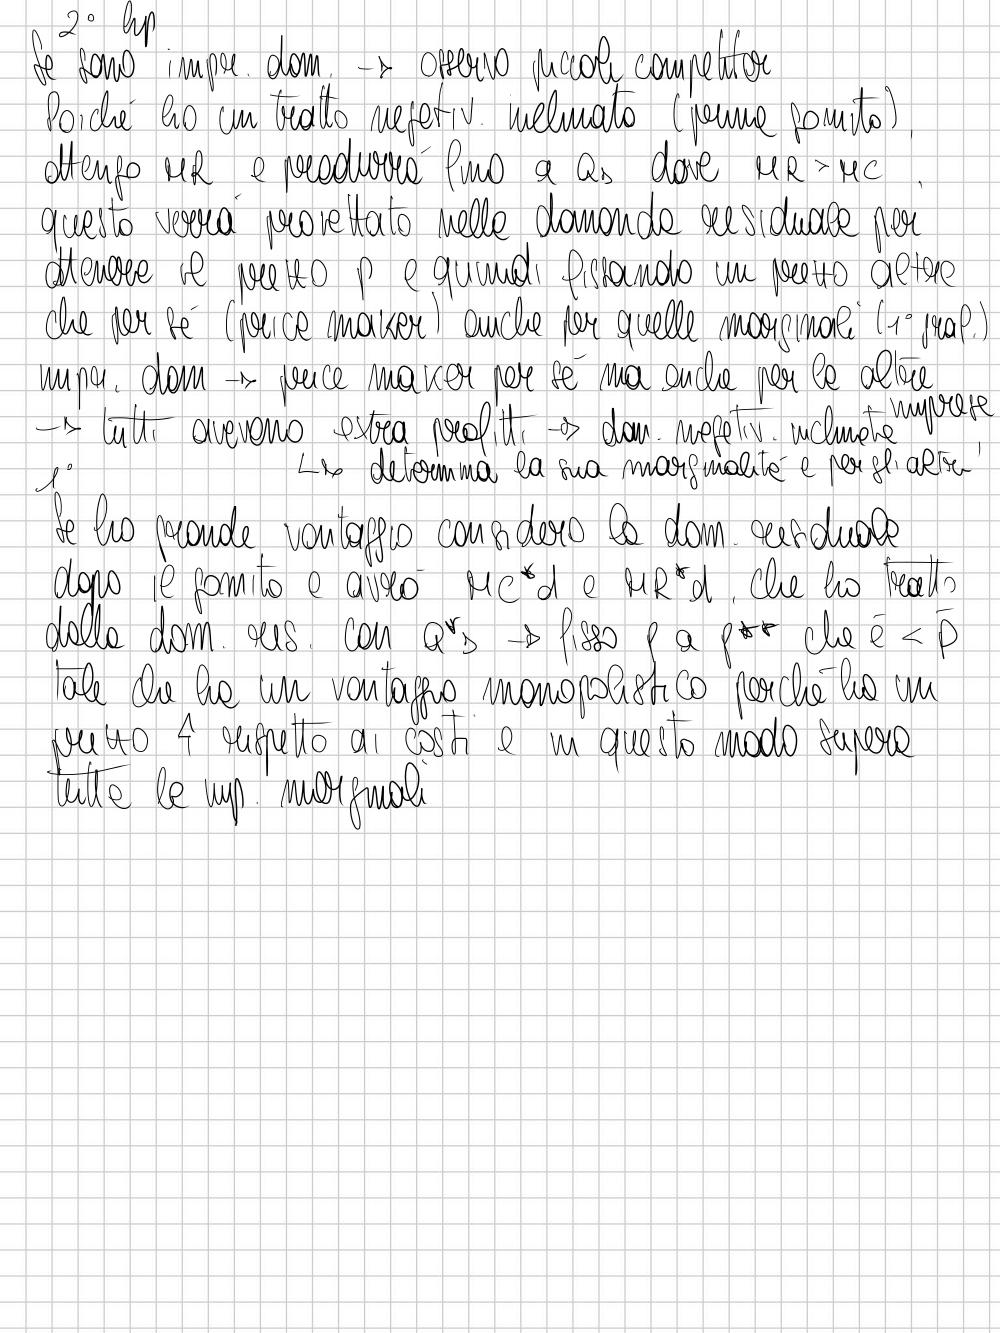 2° hp
Se sono impr. dom. -> osservo piccoli competitor
Poiché ho un tratto negativ. inclinato (prima gomito),
ottengo MR e produrrà fino a QD dove MR > MC,
questo verrà proiettato nella domanda residuale per
ottenere il prezzo p e quindi fissando un prezzo oltre
che per sé (price maker) anche per quelle marginali (1° graf.)
impr. dom -> price maker per sé ma anche per le altre
imprese
-> tutti avevano extra profitti -> dom. negativ. inclinata
↳ determina la sua marginalità e per gli altri
1°
Se ho grande vantaggio considero la dom. residuale
dopo il gomito e avrò MC*d e MR*d, che ho tratto
dalla dom. res. con Q*D -> fisso p a p** che è < p̄
tale che ha un vantaggio monopolistico perché ha un
prezzo ↑ rispetto ai costi e in questo modo supera
tutte le imp. marginali